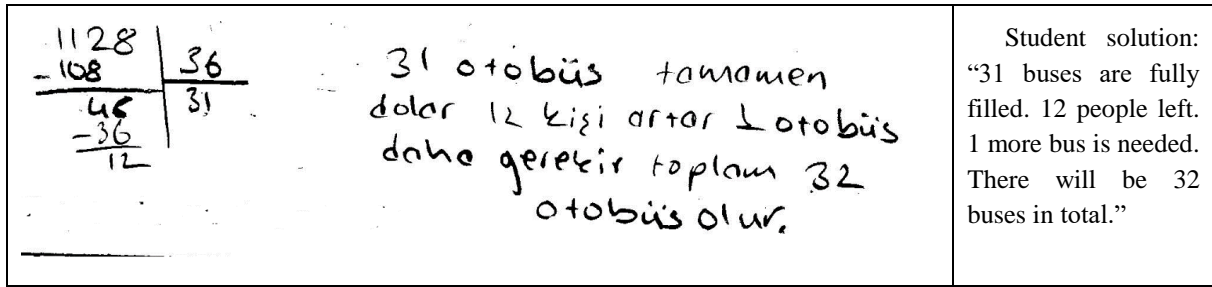 1128 36
-108 31
48
-36
12
31 otobüs tamamen
dolar 12 kişi artar 1 otobüs
daha gerekir toplam 32
otobüs olur.
Student solution:
“31 buses are fully
filled. 12 people left.
1 more bus is needed.
There will be 32
buses in total.”